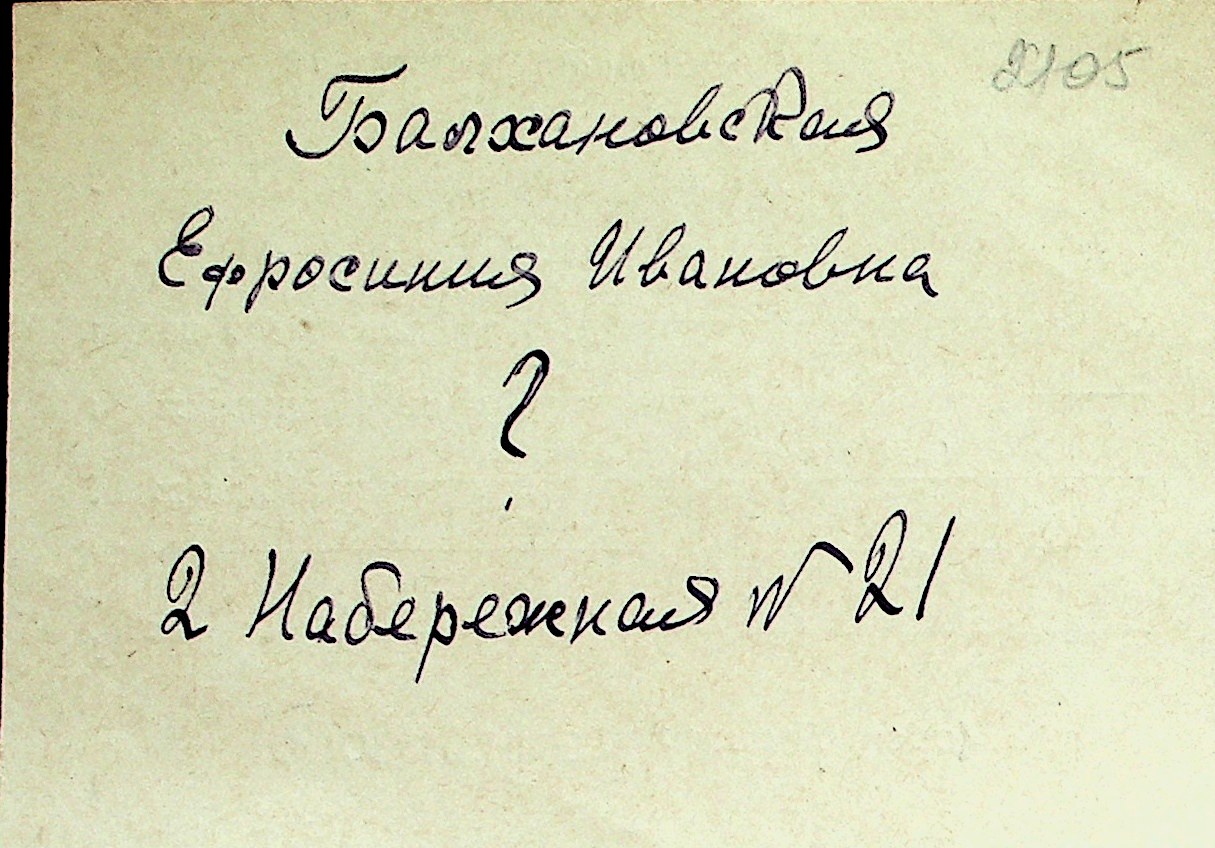 2105
Балхановская
Ефросиния Ивановна
?
2 Набережная N 21